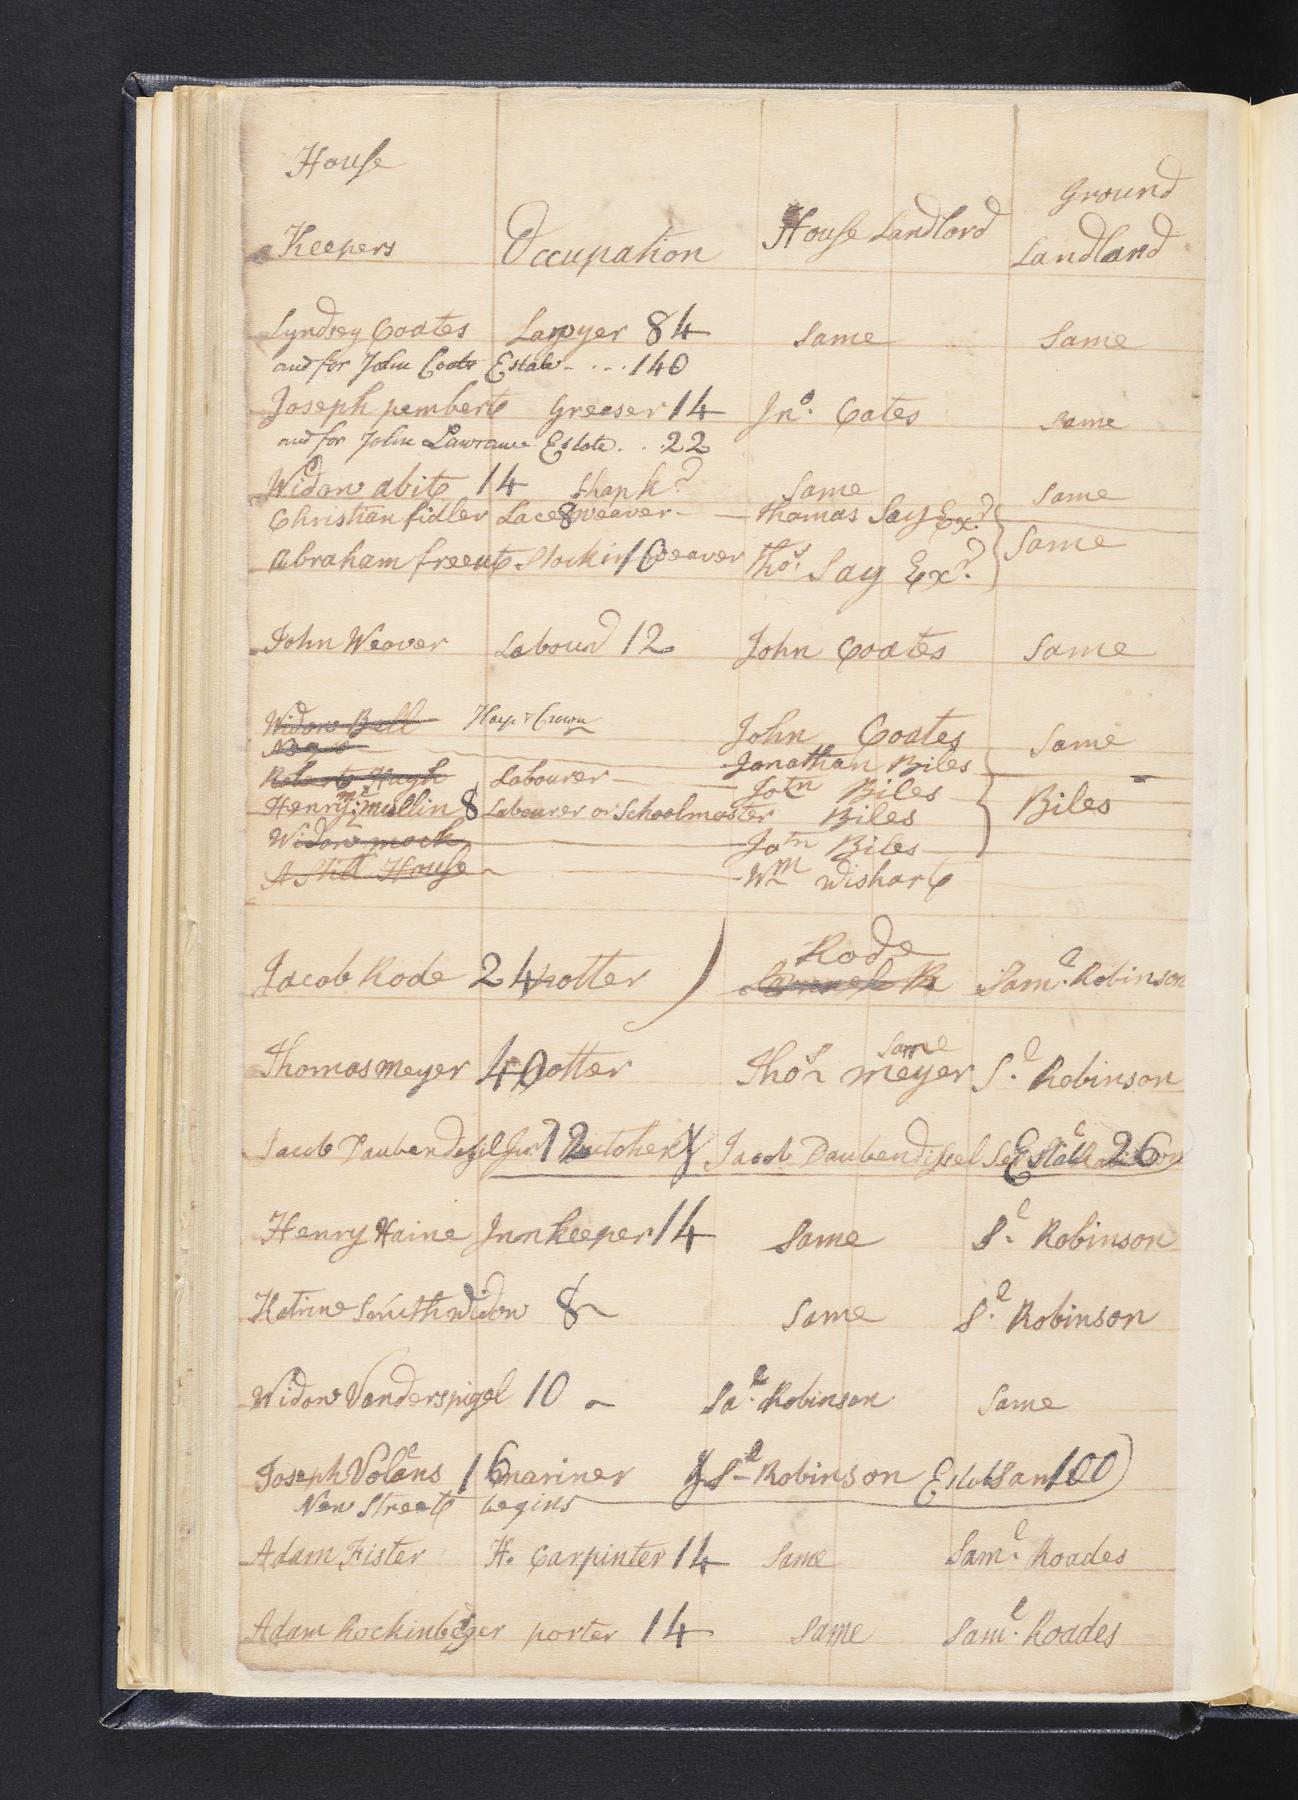 House
Ground
Keepers Occupation House Landlord Landlard
Lyndsey Coates Lawyer 84 Same Same
and for John Coats Estate - ... 140
Joseph pembert Greaser 14 Jno. Coates Same
and for John Lawrance Estate . . 22
Widow abit 14 Shopk? Same Same
Christian fidler Lace 8 weaver - Thomas Say Exr.
Abraham freeut Stockin 10 weaver Thos. Say Exr. Same
John Weaver Labour 12 John Coates Same
Widow Bell Harp & Crown John Coates Same
Negro Jonathan Biles
Robert Hugh Labourer Jotn Biles
Henry mc mullin 8 Labourer or Schoolmaster Biles Biles
Widow mock Jotn Biles
A Still House Wm Wishart
Rode
Jacob Rode 24 potter Saml. Robinson
Same
Thomas meyer 40 potter Thos meyer Sl. Robinson
Jacob Daubendissel Junr 12 Butcher Jacob Daubendissel Se Estate 26
Henry Haine Innkeeper 14 Same Sl. Robinson
Katrine Smith Widow 8 Same Sl. Robinson
Widow Vanderspigel 10 Sal. Robinson Same
Joseph Volans 16 mariner Sl Robinson Estate 100
New Street begins
Adam Fister H. Carpinter 14 Same Saml. Roades
Adam Rockinberger porter 14 Same Saml. Roades